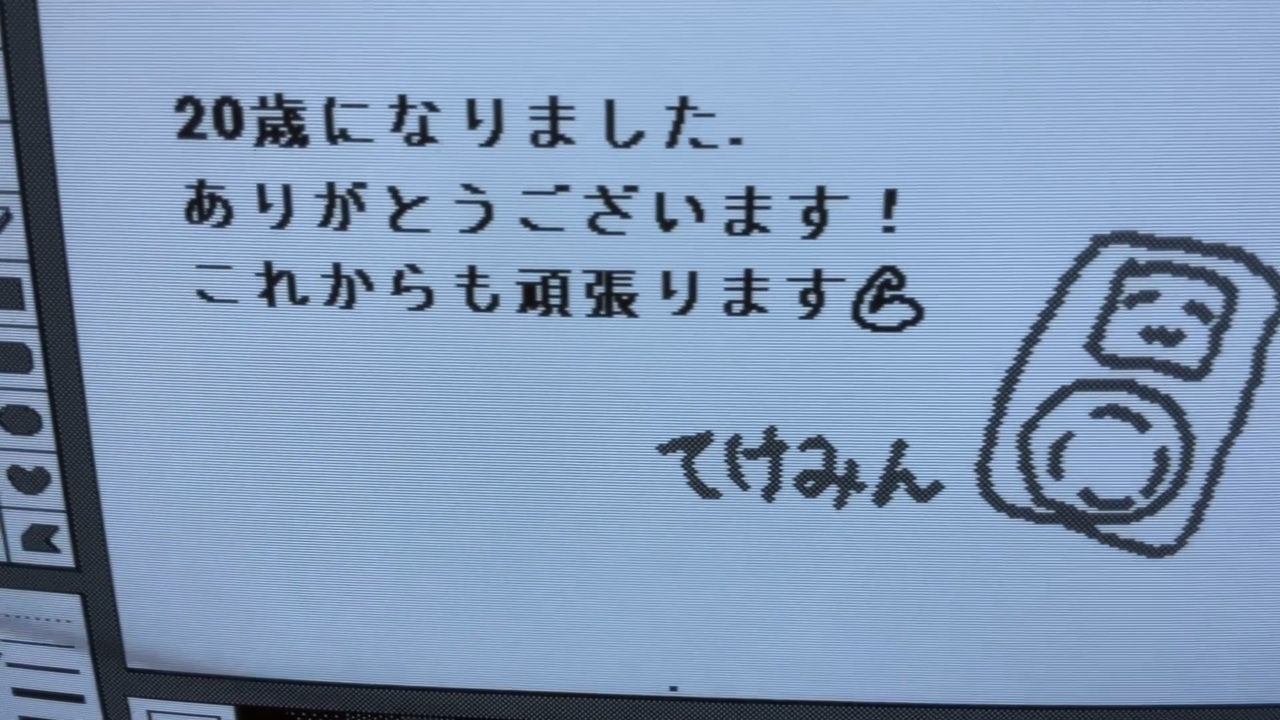 20歳になりました.
ありがとうございます！
これからも頑張ります💪
てけみん